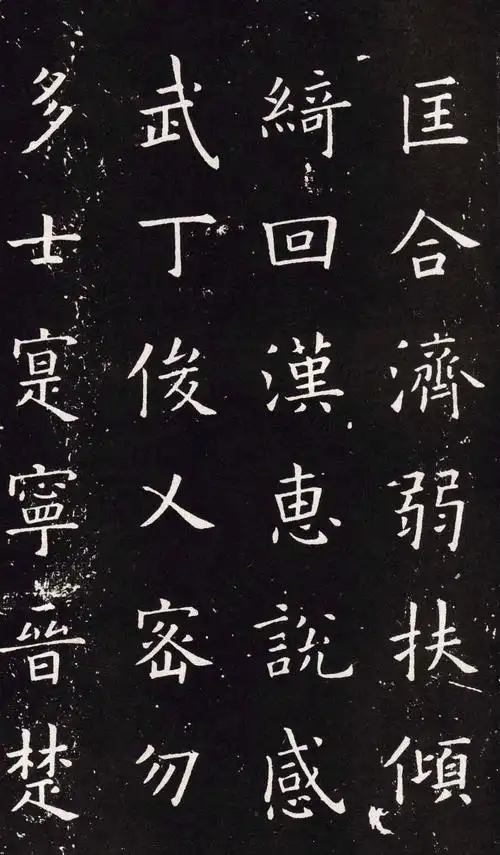 匡合濟弱扶傾
綺回漢惠說感
武丁俊乂密勿
多士寔寧晉楚